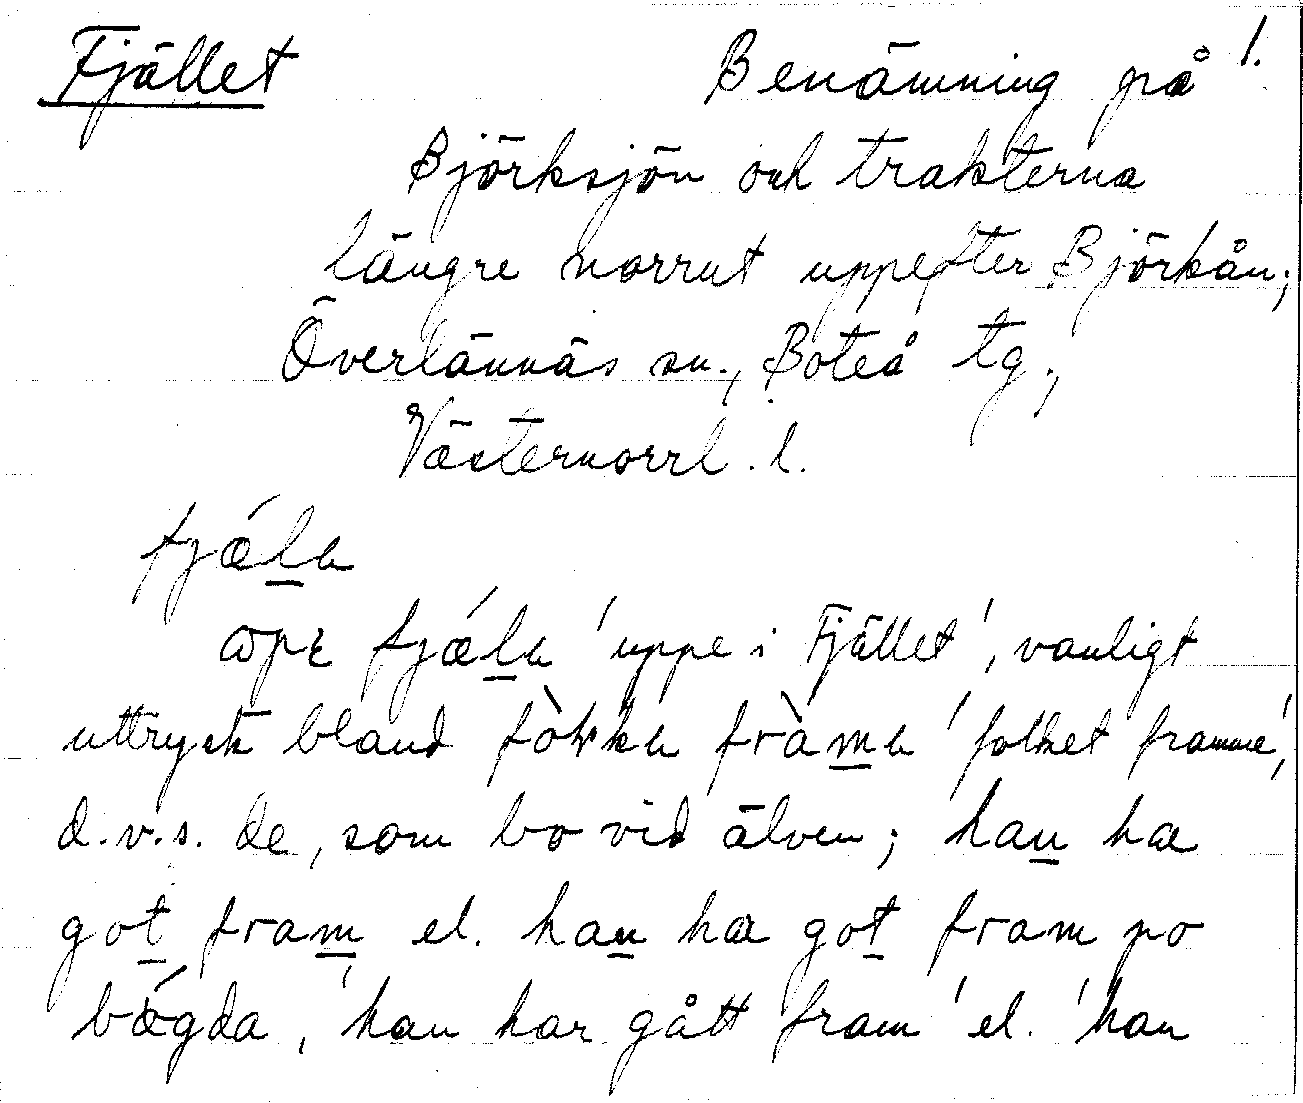 Fjället Benämning på 1.
Björksjön och trakterna
längre norrut uppefter Björkån;
Överlännäs sn., Boteå tg.,
Västernorrl. l.
fjǽl̲a
ɷpɛ fjǽl̲a 'uppe i Fjället', vanligt
uttryck bland fram̲a 'folket framme',
d.v.s. de, som bo vid älven; han̲ ha
got̲ fram̲ el. han̲ ha got̲ fram po
bǿgda, 'han har gått fram' el. 'han